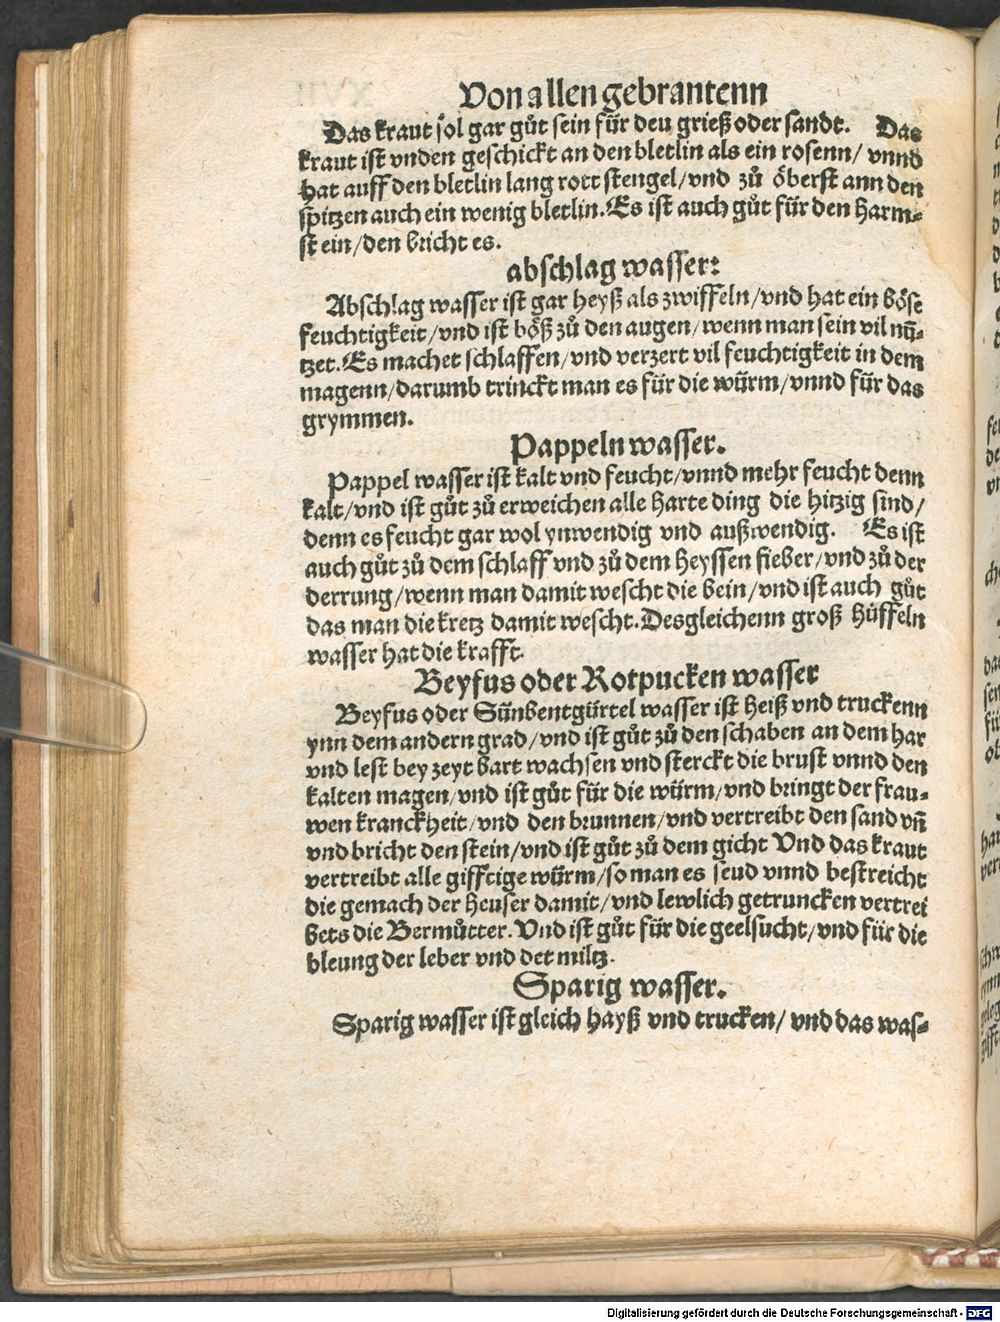 Von allen gebrantenn
Das kraut sol gar gůt sein für deu grieß oder sandt. Das
kraut ist vnden geschickt an den bletlin als ein rosenn/ vnnd
hat auff den bletlin lang rott stengel/vnd zů öberst ann den
spitzen auch ein wenig bletlin. Es ist auch gůt für den harm⸗
stein/den bricht es.
abschlag wasser:
Abschlag wasser ist gar heyß als zwiffeln/vnd hat ein böse
feuchtigkeit/vnd ist böß zů den augen/wenn man sein vil nü⸗
tzet. Es machet schlaffen/vnd verzert vil feuchtigkeit in dem
magenn/darumb trinckt man es für die würm/vnnd für das
grymmen.
Pappeln wasser.
Pappel wasser ist kalt vnd feucht/vnnd mehr feucht denn
kalt/vnd ist gůt zů erweichen alle harte ding die hitzig sind/
denn es feucht gar wol ynwendig vnd außwendig. Es ist
auch gůt zů dem schlaff vnd zů dem heyssen fieber/vnd zů der
derrung/wenn man damit wescht die bein/vnd ist auch gůt
das man die kretz damit wescht. Desgleichenn groß hüffeln
wasser hat die krafft.
Beyfus oder Rotpucken wasser
Beyfus oder Sünbentgürtel wasser ist heiß vnd truckenn
ynn dem andern grad/vnd ist gůt zů den schaben an dem har
vnd lest bey zeyt bart wachsen vnd sterckt die brust vnnd den
kalten magen/vnd ist gůt für die würm/vnd bringt der frau⸗
wen kranckheit/vnd den brunnen/vnd vertreibt den sand vñ
vnd bricht den stein/vnd ist gůt zů dem gicht Vnd das kraut
vertreibt alle gifftige würm/so man es seud vnnd bestreicht
die gemach der heuser damit/vnd lewlich getruncken vertrei
bets die Bermůtter. Vnd ist gůt für die geelsucht/vnd für die
bleung der leber vnd det miltz.
Sparig wasser.
Sparig wasser ist gleich hayß vnd trucken/ vnd das was⸗
Digitalisierung gefördert durch die Deutsche Forschungsgemeinschaft - DFG